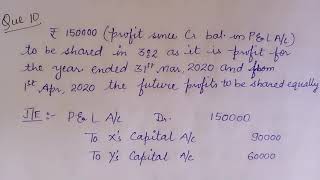 Que 10
₹ 150000 (profit since Cr bal. in P&L A/c)
to be shared in 3:2 as it is profit for
the year ended 31st Mar, 2020 and from
1st Apr, 2020 the future profits to be shared equally
J/E:- P&L A/c Dr. 150000
To X's Capital A/c 90000
To Y's Capital A/c 60000